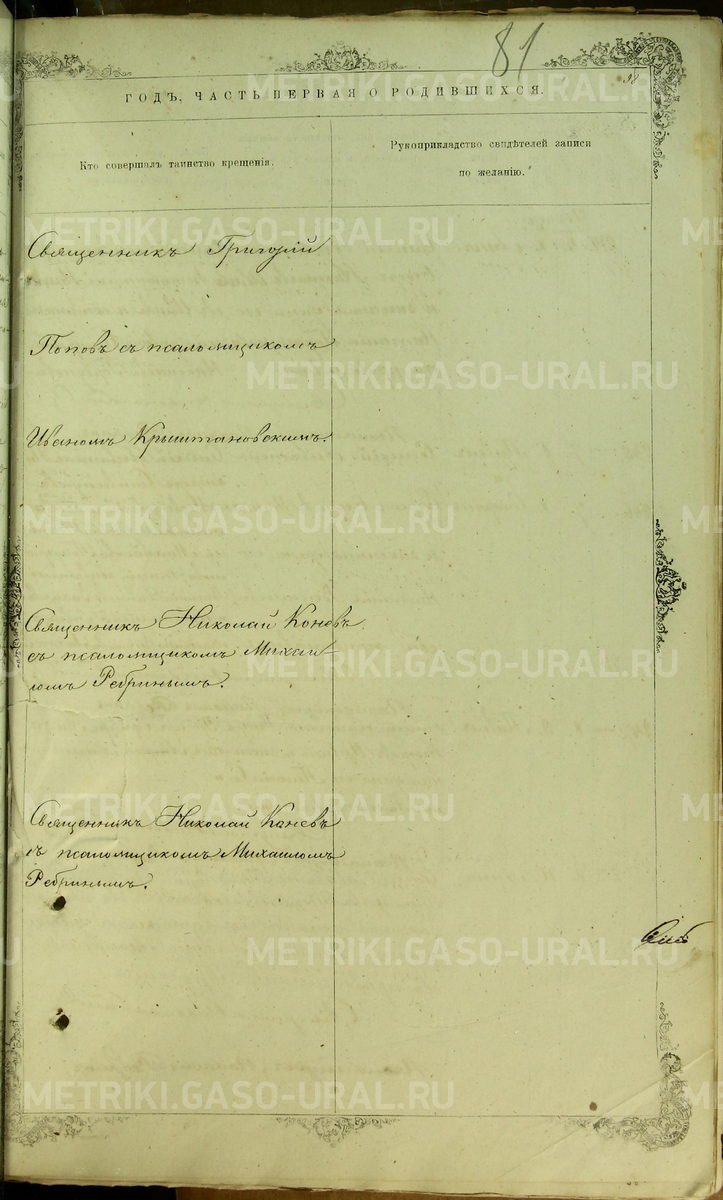 81
ГОДЪ, ЧАСТЬ ПЕРВАЯ О РОДИВШИХСЯ.
Кто совершалъ таинство крещенія.
Рукоприкладство свидѣтелей записи
по желанію.
Священникъ Григорій
Поповъ съ псаломщикомъ
Иваномъ Крыштановскимъ.
Священникъ Николай Коневъ
съ псаломщикомъ Михаи-
ломъ Ребринымъ.
Священникъ Николай Каневъ
съ псаломщикомъ Михаиломъ
Ребринымъ.
METRIKI.GASO-URAL.RU